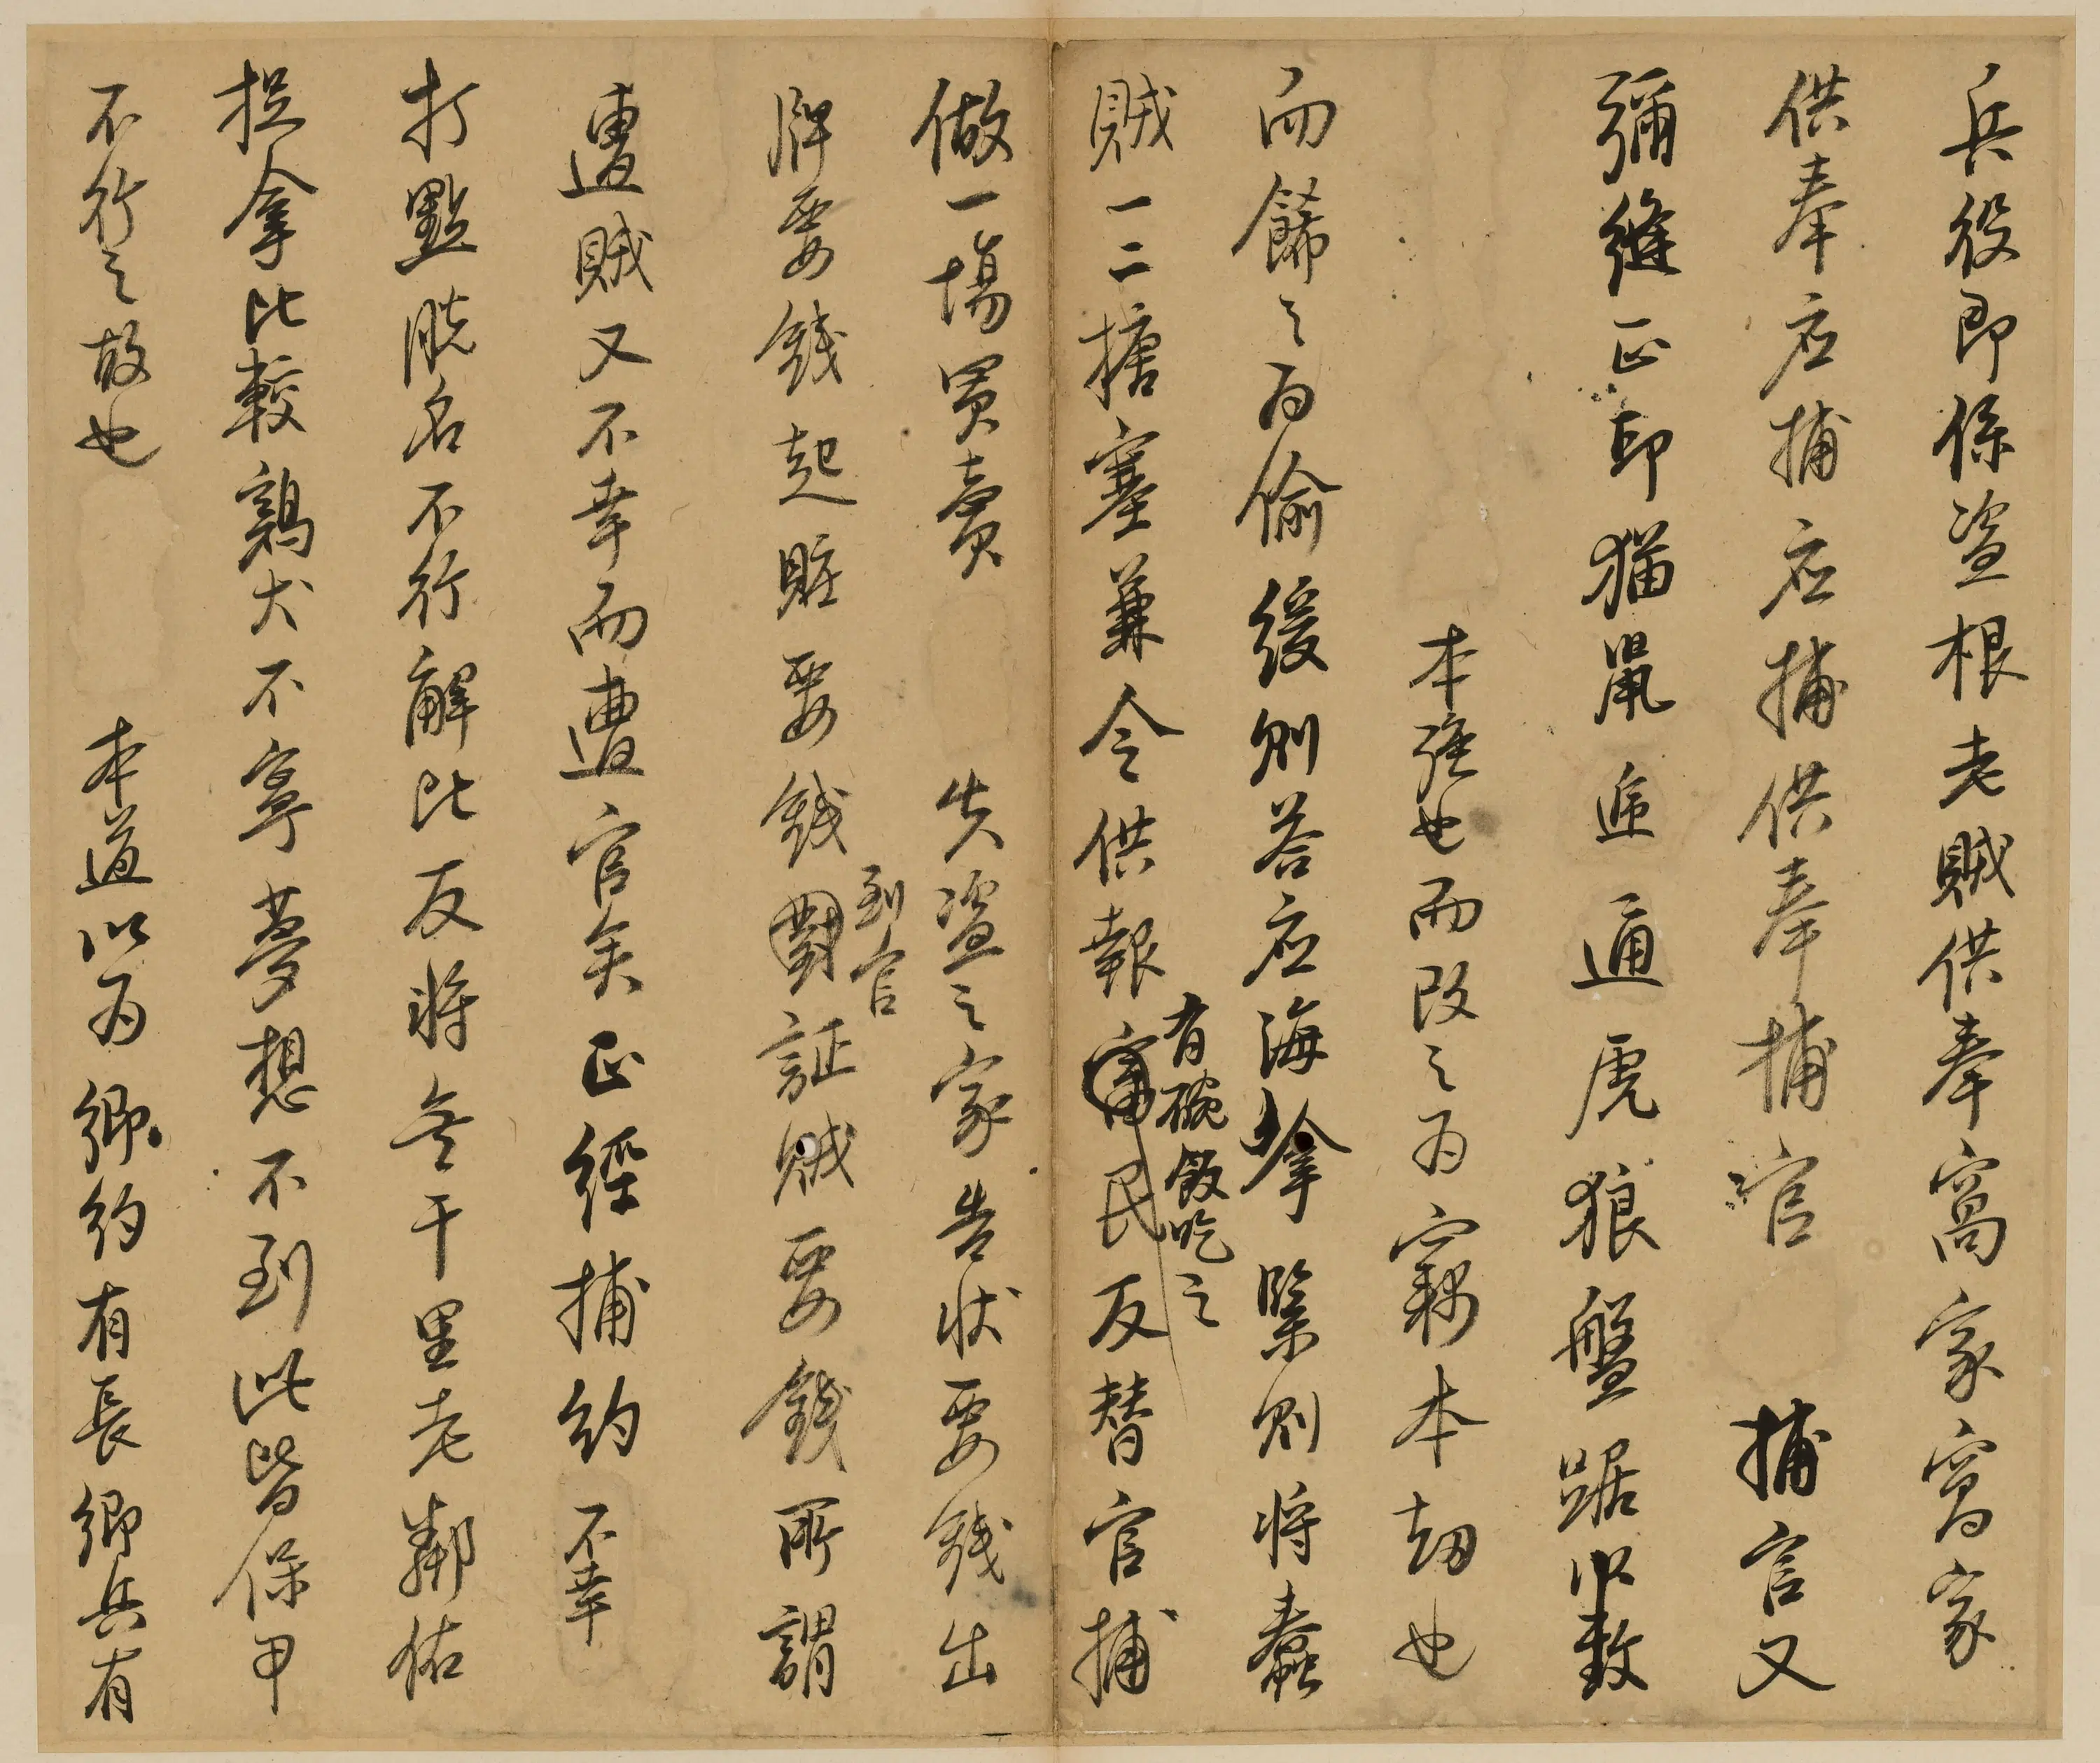 兵役即係盜根老賊供奉窩家窩家
供奉应捕应捕供奉捕官 捕官又
彌縫正印猫鼠逓通虎狼盤踞以致
本強也而改之为竊本劫也
而餙之为偷緩则荅应海拿緊则将蠢
賊一二搪塞兼令供報富民反替官捕
有碗飯吃之
做一塲買賣 失盜之家告状要錢出
牌要錢起賍要錢對証賊要錢所謂
到官
遭賊又不幸而遭官矣正經捕约不幸
打點脱名不行解比反将無干里老鄰佑
捉拿比較鷄犬不寧夢想不到此皆保甲
不行之故也 本道以为鄉约有長鄉兵有